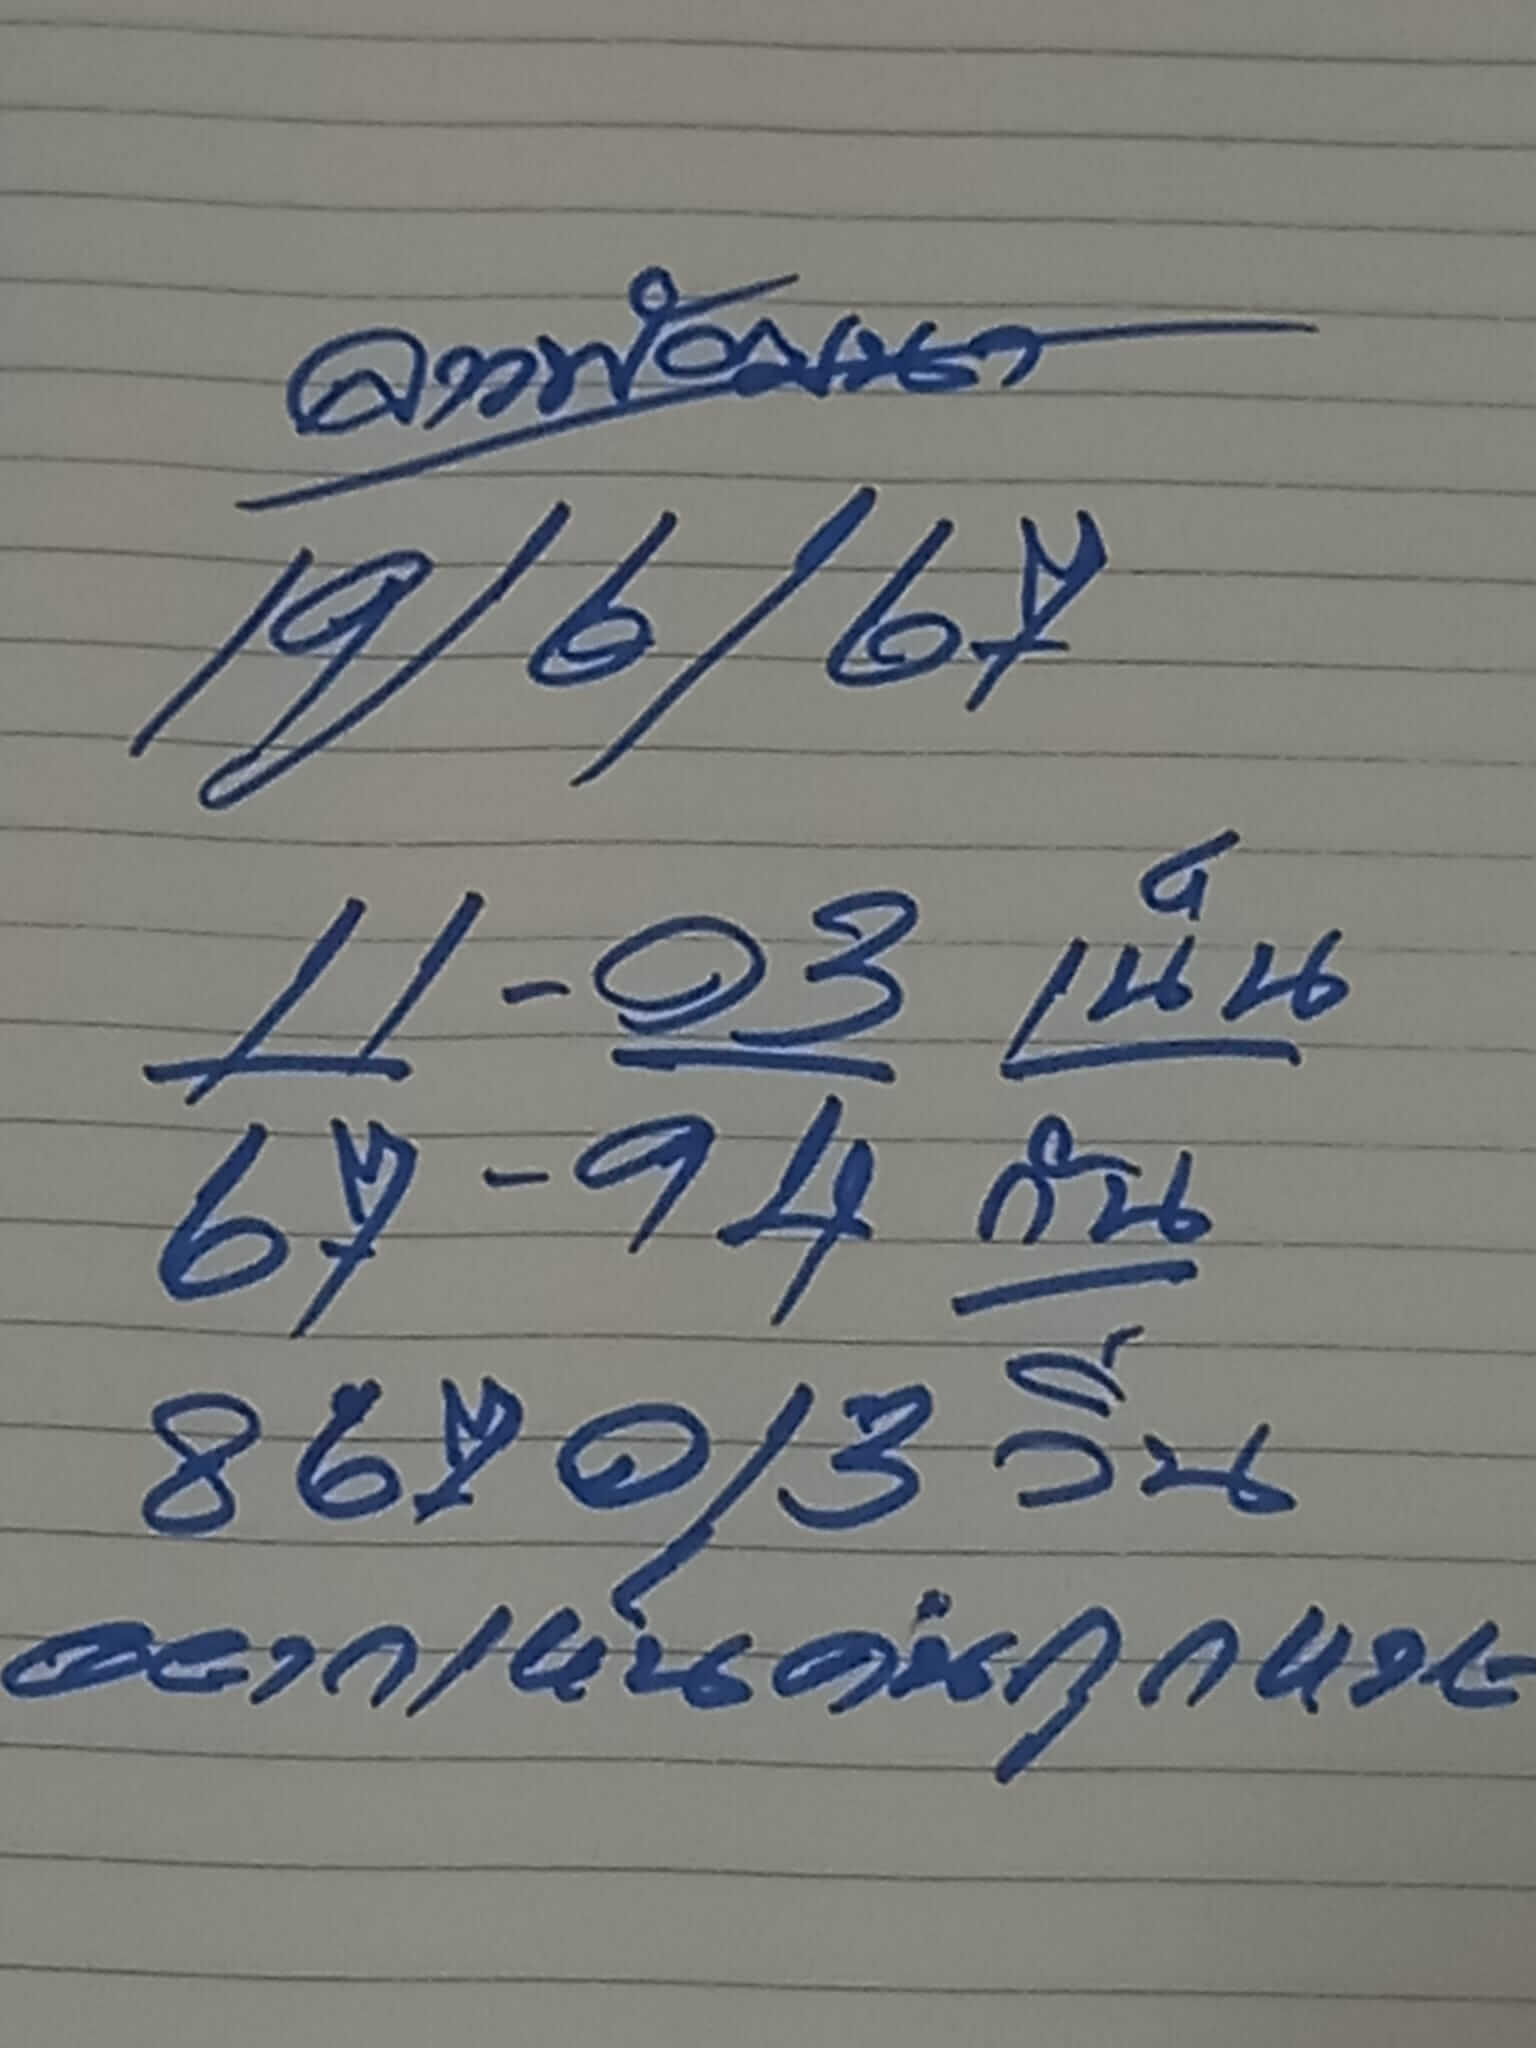 ลาวพัฒนา
19/6/67
11-03 เน้น
67-94 กัน
867013 วิ่น
อยากเห็นคนถูกหวย